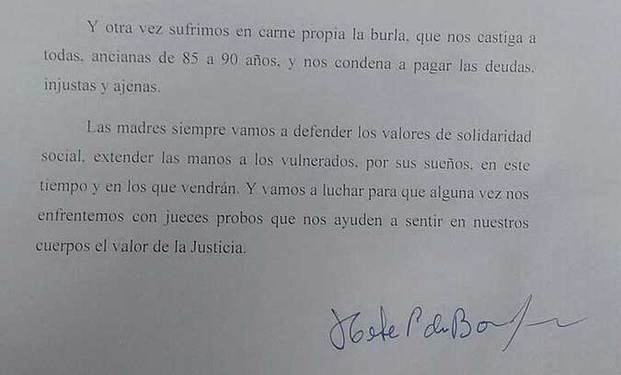 Y otra vez sufrimos en carne propia la burla, que nos castiga a
todas, ancianas de 85 a 90 años, y nos condena a pagar las deudas,
injustas y ajenas.
Las madres siempre vamos a defender los valores de solidaridad
social, extender las manos a los vulnerados, por sus sueños, en este
tiempo y en los que vendrán. Y vamos a luchar para que alguna vez nos
enfrentemos con jueces probos que nos ayuden a sentir en nuestros
cuerpos el valor de la Justicia.